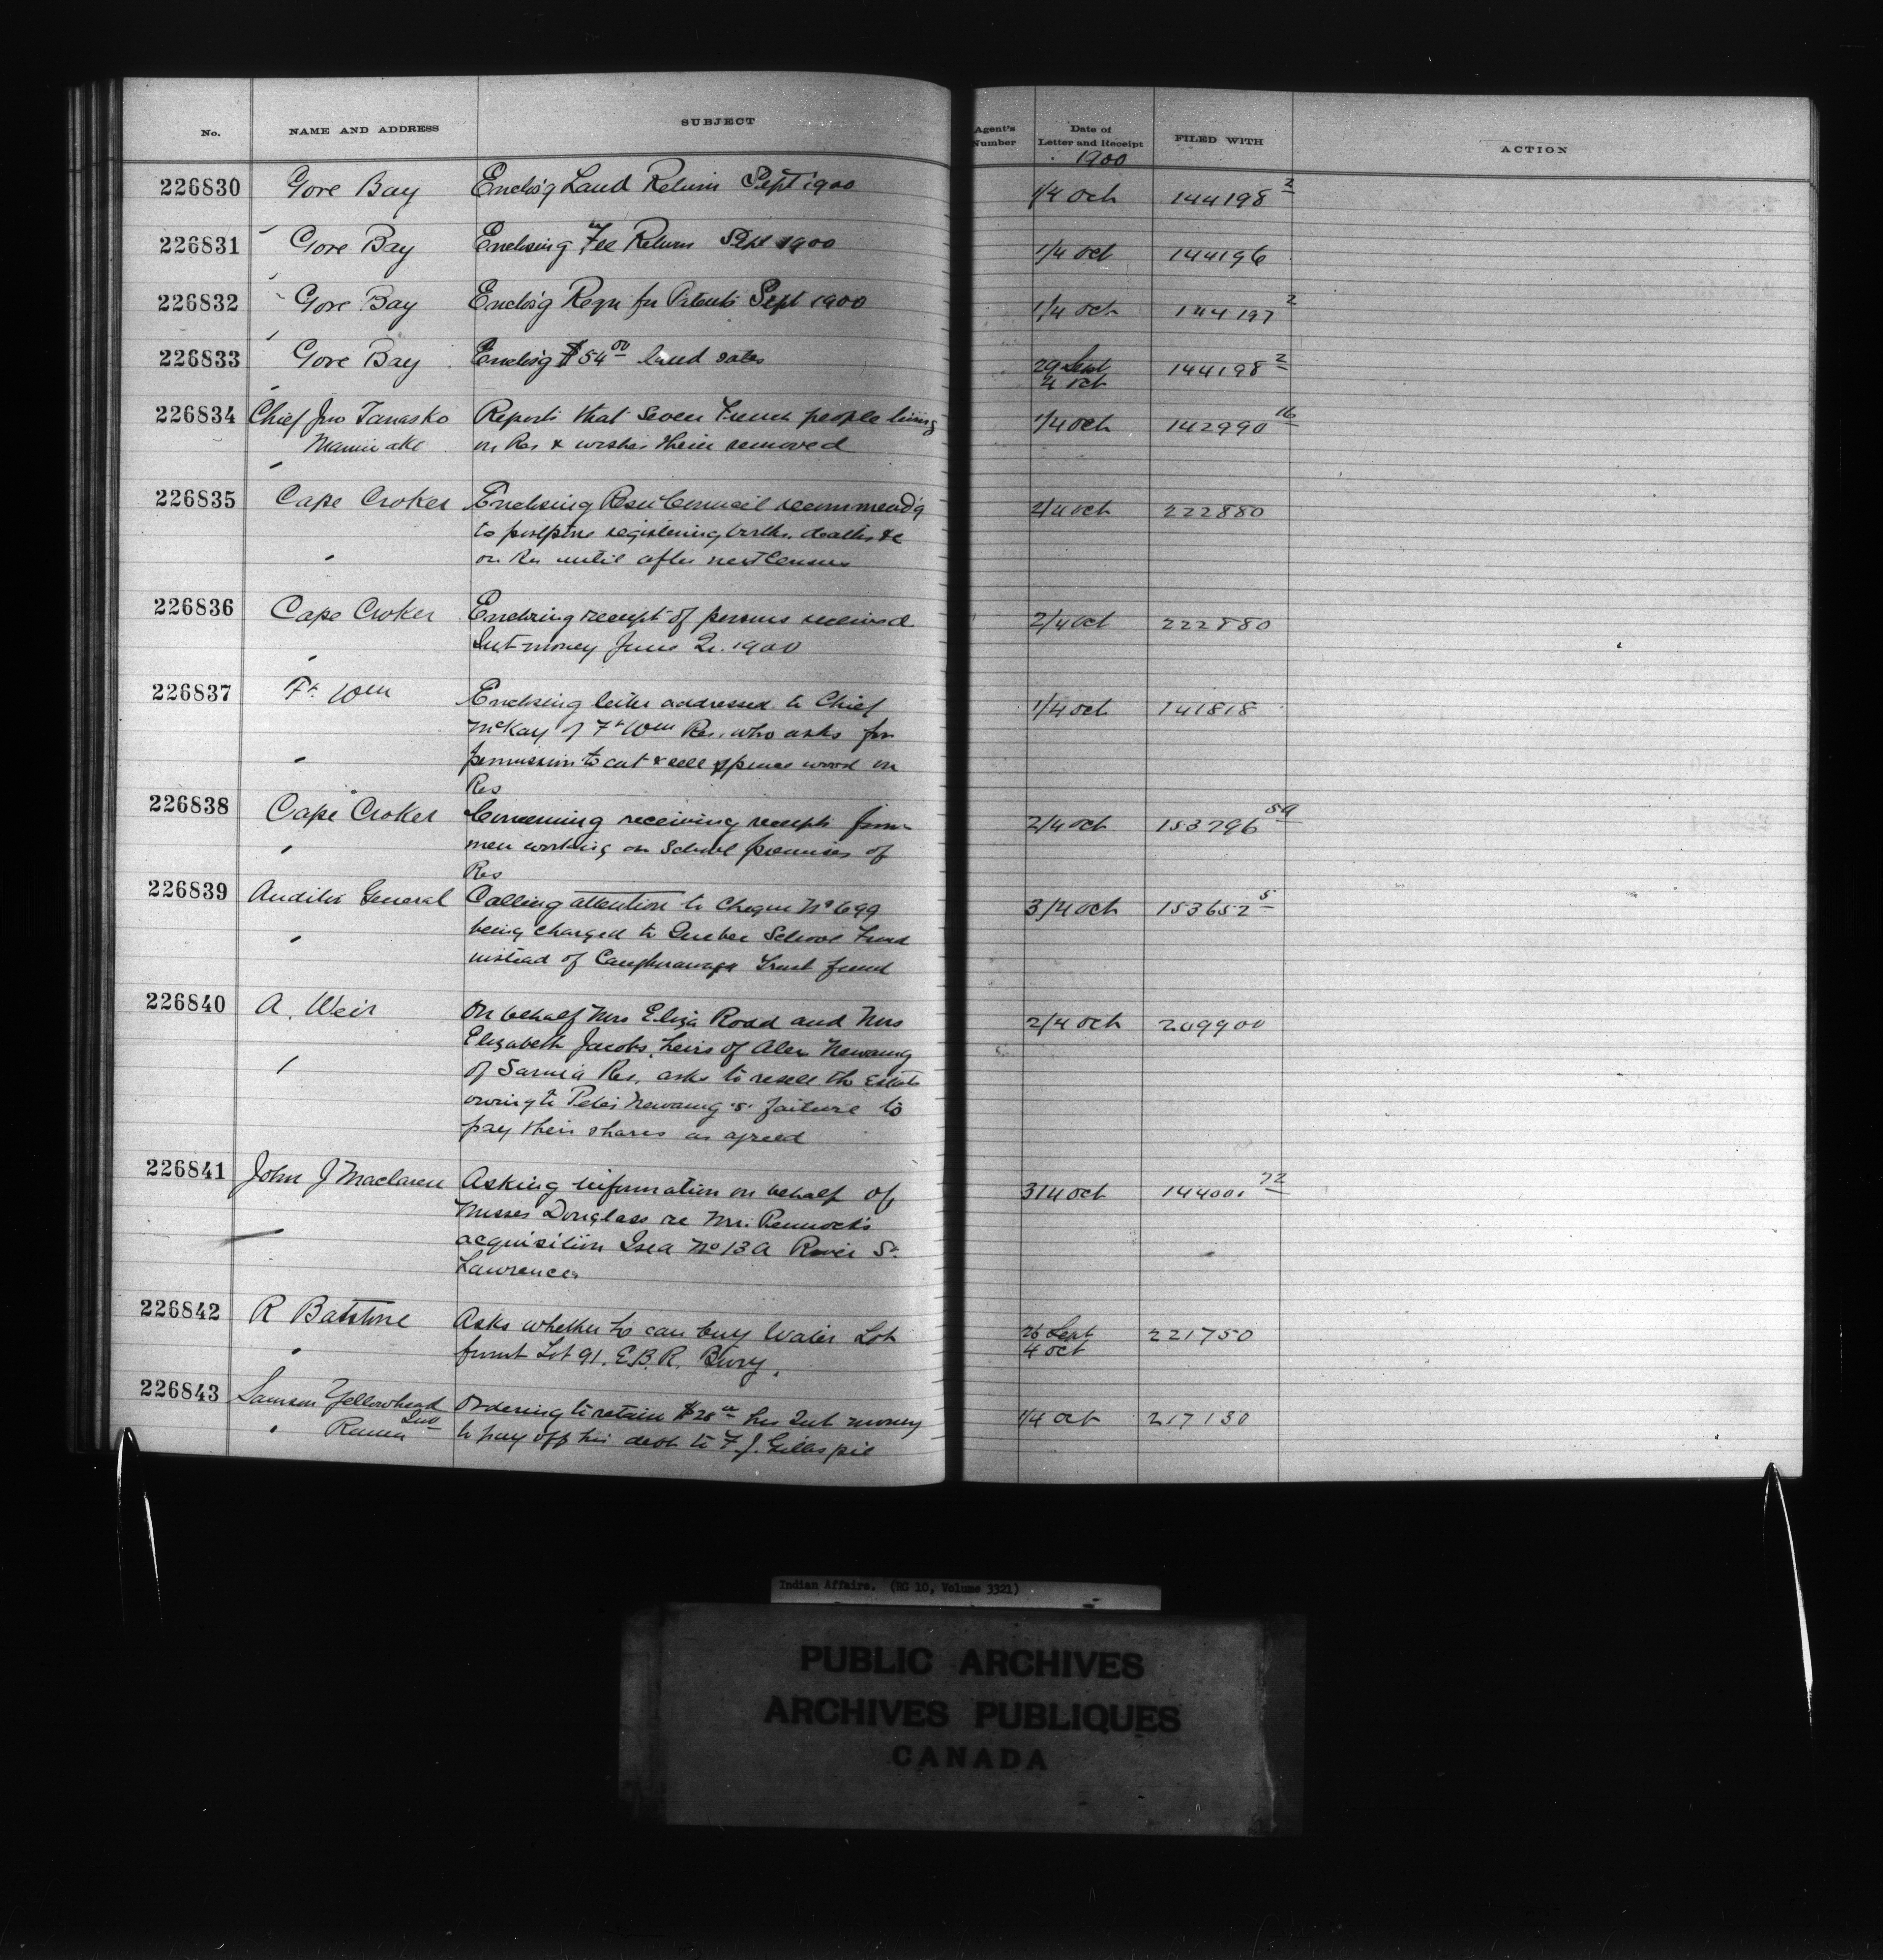 No. NAME AND ADDRESS SUBJECT Agent's Number Date of Letter and Receipt FILED WITH ACTION
1900
226830 Gore Bay Enclos'g Land Return Sept 1900 1/4 Oct 144198 2
226831 Gore Bay Enclosing Fee Return Sept 1900 1/4 Oct 144196
226832 Gore Bay Enclos'g Requ for Patents Sept 1900 1/4 Oct 144197 2
226833 Gore Bay Enclos'g $54 00 land sales 29 Sept 144198 2
4 Oct
226834 Chief Jno Tanasko Reports that seven French people living 1/4 Oct 142990 16
Maniwake on Res & wishes them removed
226835 Cape Croker Enclosing Resn Council recommend'g 2/4 Oct 222880
to postpone registering births, deaths &c
on Res until after next Census
226836 Cape Croker Enclosing receipt of persons received 2/4 Oct 222880
Int money June 2. 1900
226837 Ft Wm Enclosing letter addressed to Chief 1/4 Oct 141818
McKay of Ft Wm Res. who asks for
permission to cut & sell spruce wood on
Res
226838 Cape Croker Concerning receiving receipts from 2/4 Oct 153796 59
men working on School premises of
Res
226839 Auditor General Calling attention to cheque No 699 3/4 Oct 153652 5
being charged to Quebec School Fund
instead of Caughnawaga Trust fund
226840 A. Weir On behalf Mrs Eliza Rodd and Mrs 2/4 Oct 209900
Elizabeth Jacobs, heirs of Alex Nawaug
of Sarnia Res, asks to resell the Estate
owing to Peter Nawaug's failure to
pay their shares as agreed
226841 John J Maclaren Asking information on behalf of 3/4 Oct 144001 72
Misses Douglass re Mr. Pennock's
acquisition Isld No 13A River St.
Lawrence
226842 R Batstone Asks whether he can buy Water Lot 26 Sept 221750
front Lot 91. E.B.R. Bury. 4 Oct
226843 Samson Yellowhead Ordering to retain $28 his Int money 1/4 Oct 217130
Rama to pay off his debt to F. J. Gillaspie
Indian Affairs. (RG 10, Volume 3321)
PUBLIC ARCHIVES
ARCHIVES PUBLIQUES
CANADA